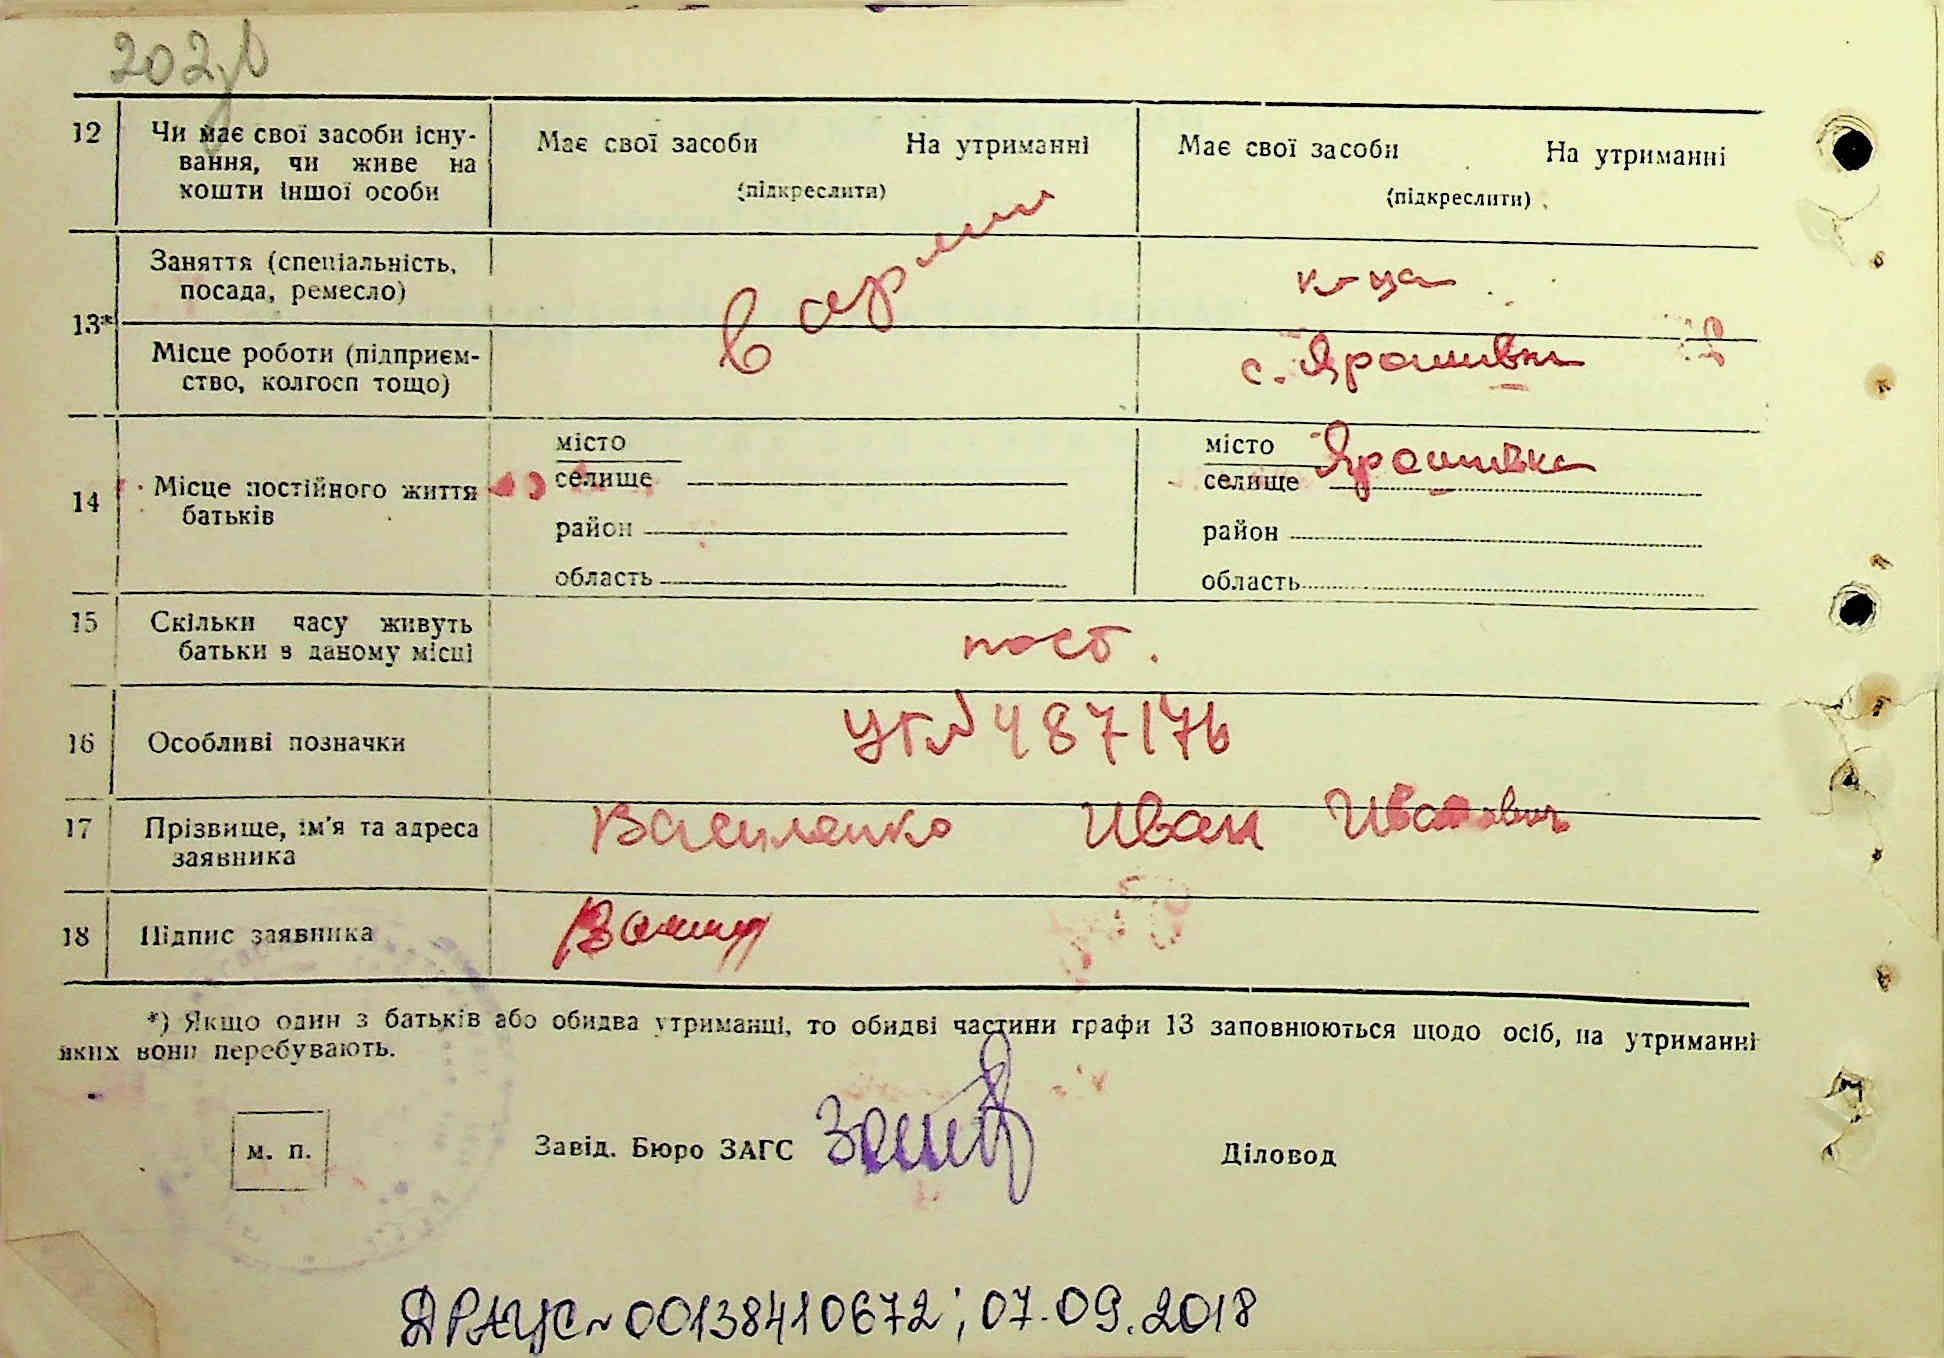 202
12 Чи має свої засоби існу-
вання, чи живе на
кошти іншої особи
Має свої засоби На утриманні
(підкреслити)
Має свої засоби На утриманні
(підкреслити)
13*
Заняття (спеціальність,
посада, ремесло)
в армии
к-ца
Місце роботи (підприєм-
ство, колгосп тощо)
с. Ярошивки
14 Місце постійного життя
батьків
місто
селище
район
область
місто
селище Ярошивка
район
область
15 Скільки часу живуть
батьки в даному місці
пост.
16 Особливі позначки
№ 487176
17 Прізвище, ім'я та адреса
заявника
Василенко Иван Иванович
18 Підпис заявника
*) Якщо один з батьків або обидва утриманці, то обидві частини графи 13 заповнюються щодо осіб, на утриманні
яких вони перебувають.
м. п.
Завід. Бюро ЗАГС
Діловод
ДРАЦС № 00138410672; 07.09.2018